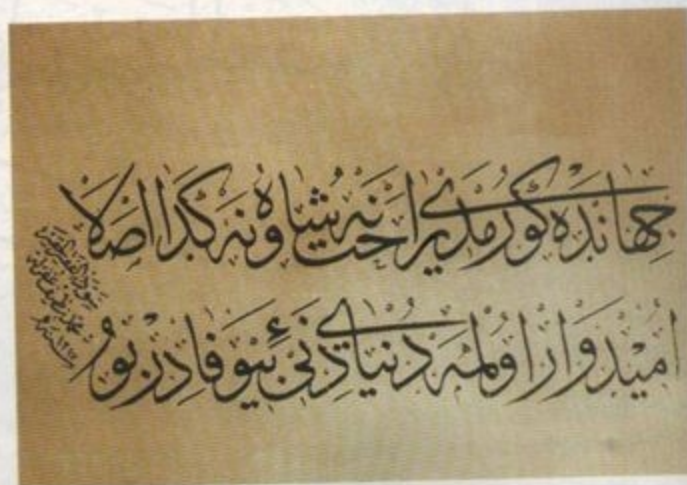 جهانده كورمدى راحت نه شاه و نه كدا اصلا
اميدوار اولمه دنياى دنئ بيوفادر بو